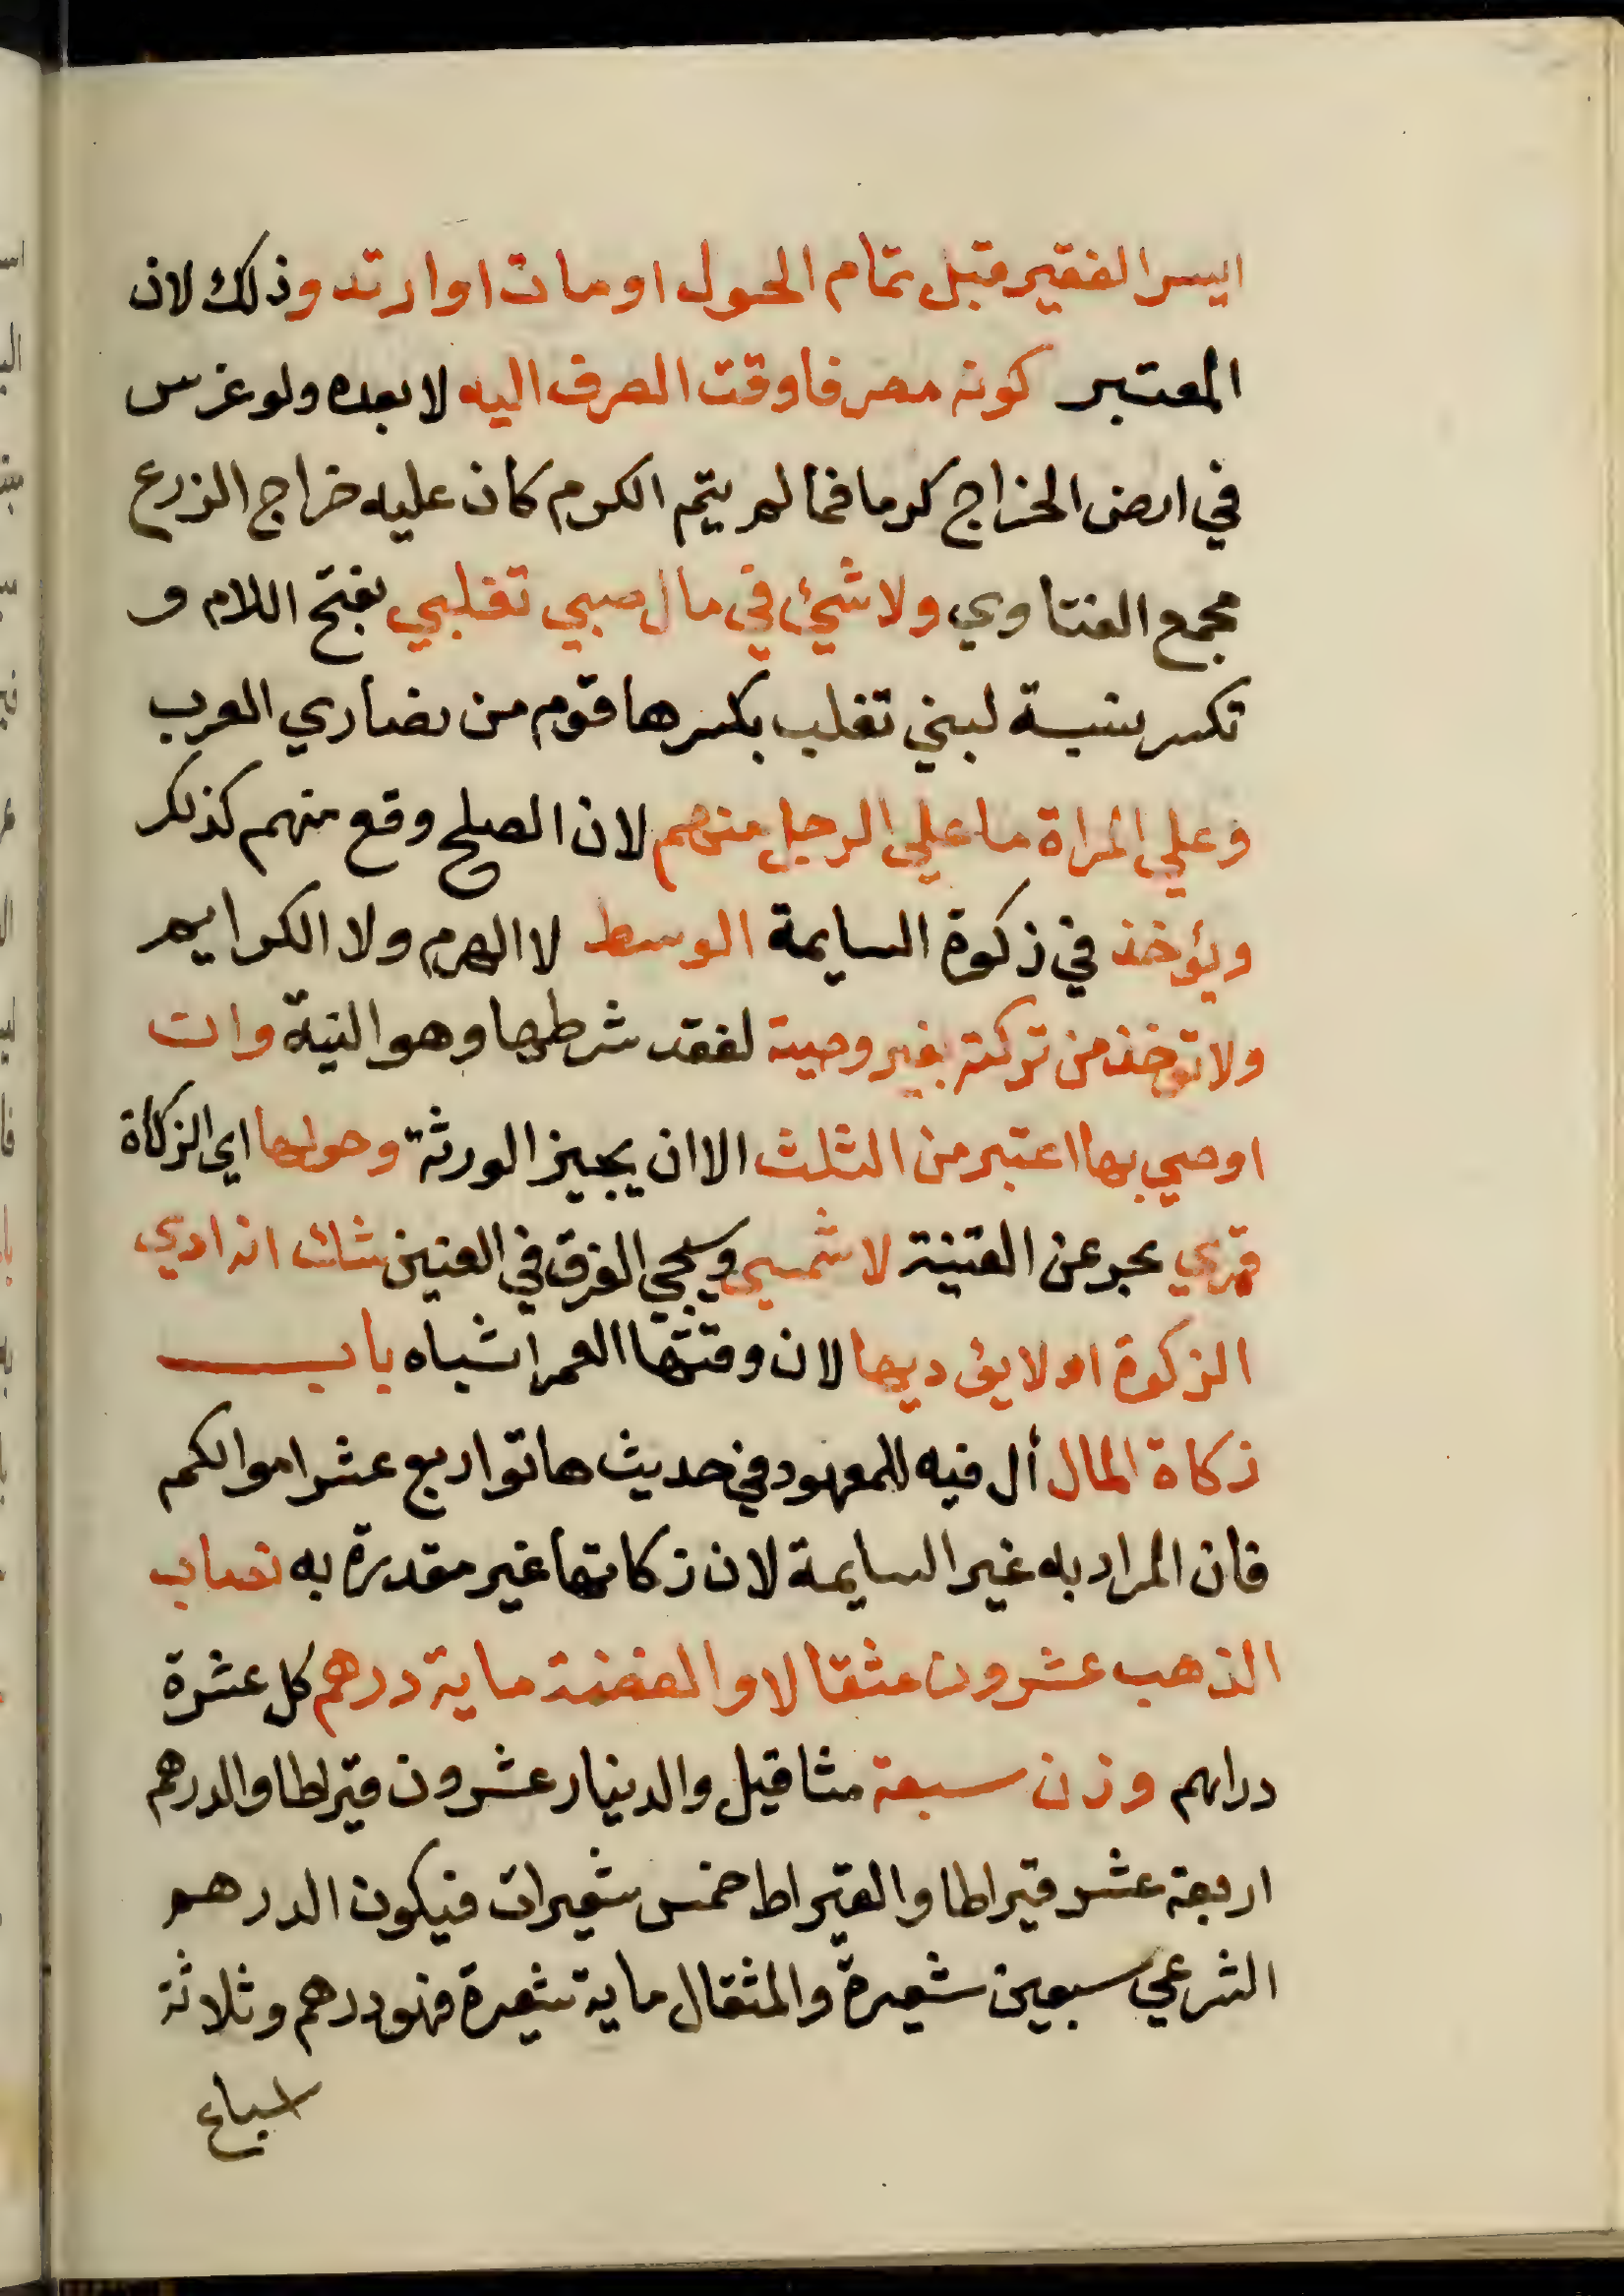 ايسر الفقير قبل تمام الحول او مات او ارتد وذلك لان
المعتبر كونه مصرفا وقت الصرف اليه لا بعده ولو غرس
في ارض الخراج كرما فما لم يتم الكرم كان عليه خراج الزرع
مجمع الفتاوي ولا شئ في مال صبي تغلبي بفتح اللام و
تكسر نسبة لبني تغلب بكسرها قوم من نصاري العرب
وعلي المراة ما علي الرجل منهم لان الصلح وقع منهم كذلك
ويؤخذ في زكوة السايمة الوسط لا الهرم ولا الكرايم
ولا توخذ من تركته بغير وصية لفقد شرطها وهو النية وان
اوصي بها اعتبر من الثلث الا ان يجيز الورثة وحولها اي الزكاة
قمري بحر عن القنية لا شمسي وسيجي الفرق في العنين شك انه ادي
الزكوة او لا يؤديها لان وقتها العمر اشباه باب
زكاة المال أل فيه للمعهود في حديث هاتوا ربع عشر اموالكم
فان المراد به غير السايمة لان زكاتها غير مقدرة به نصاب
الذهب عشرون مثقالا والفضة ماية درهم كل عشرة
دراهم وزن سبعة مثاقيل والدينار عشرون قيراطا والدرهم
اربعة عشر قيراطا والقيراط خمس شعيرات فيكون الدرهم
الشرعي سبعين شعيرة والمثقال ماية شعيرة فهو درهم وثلاثة
اسباع